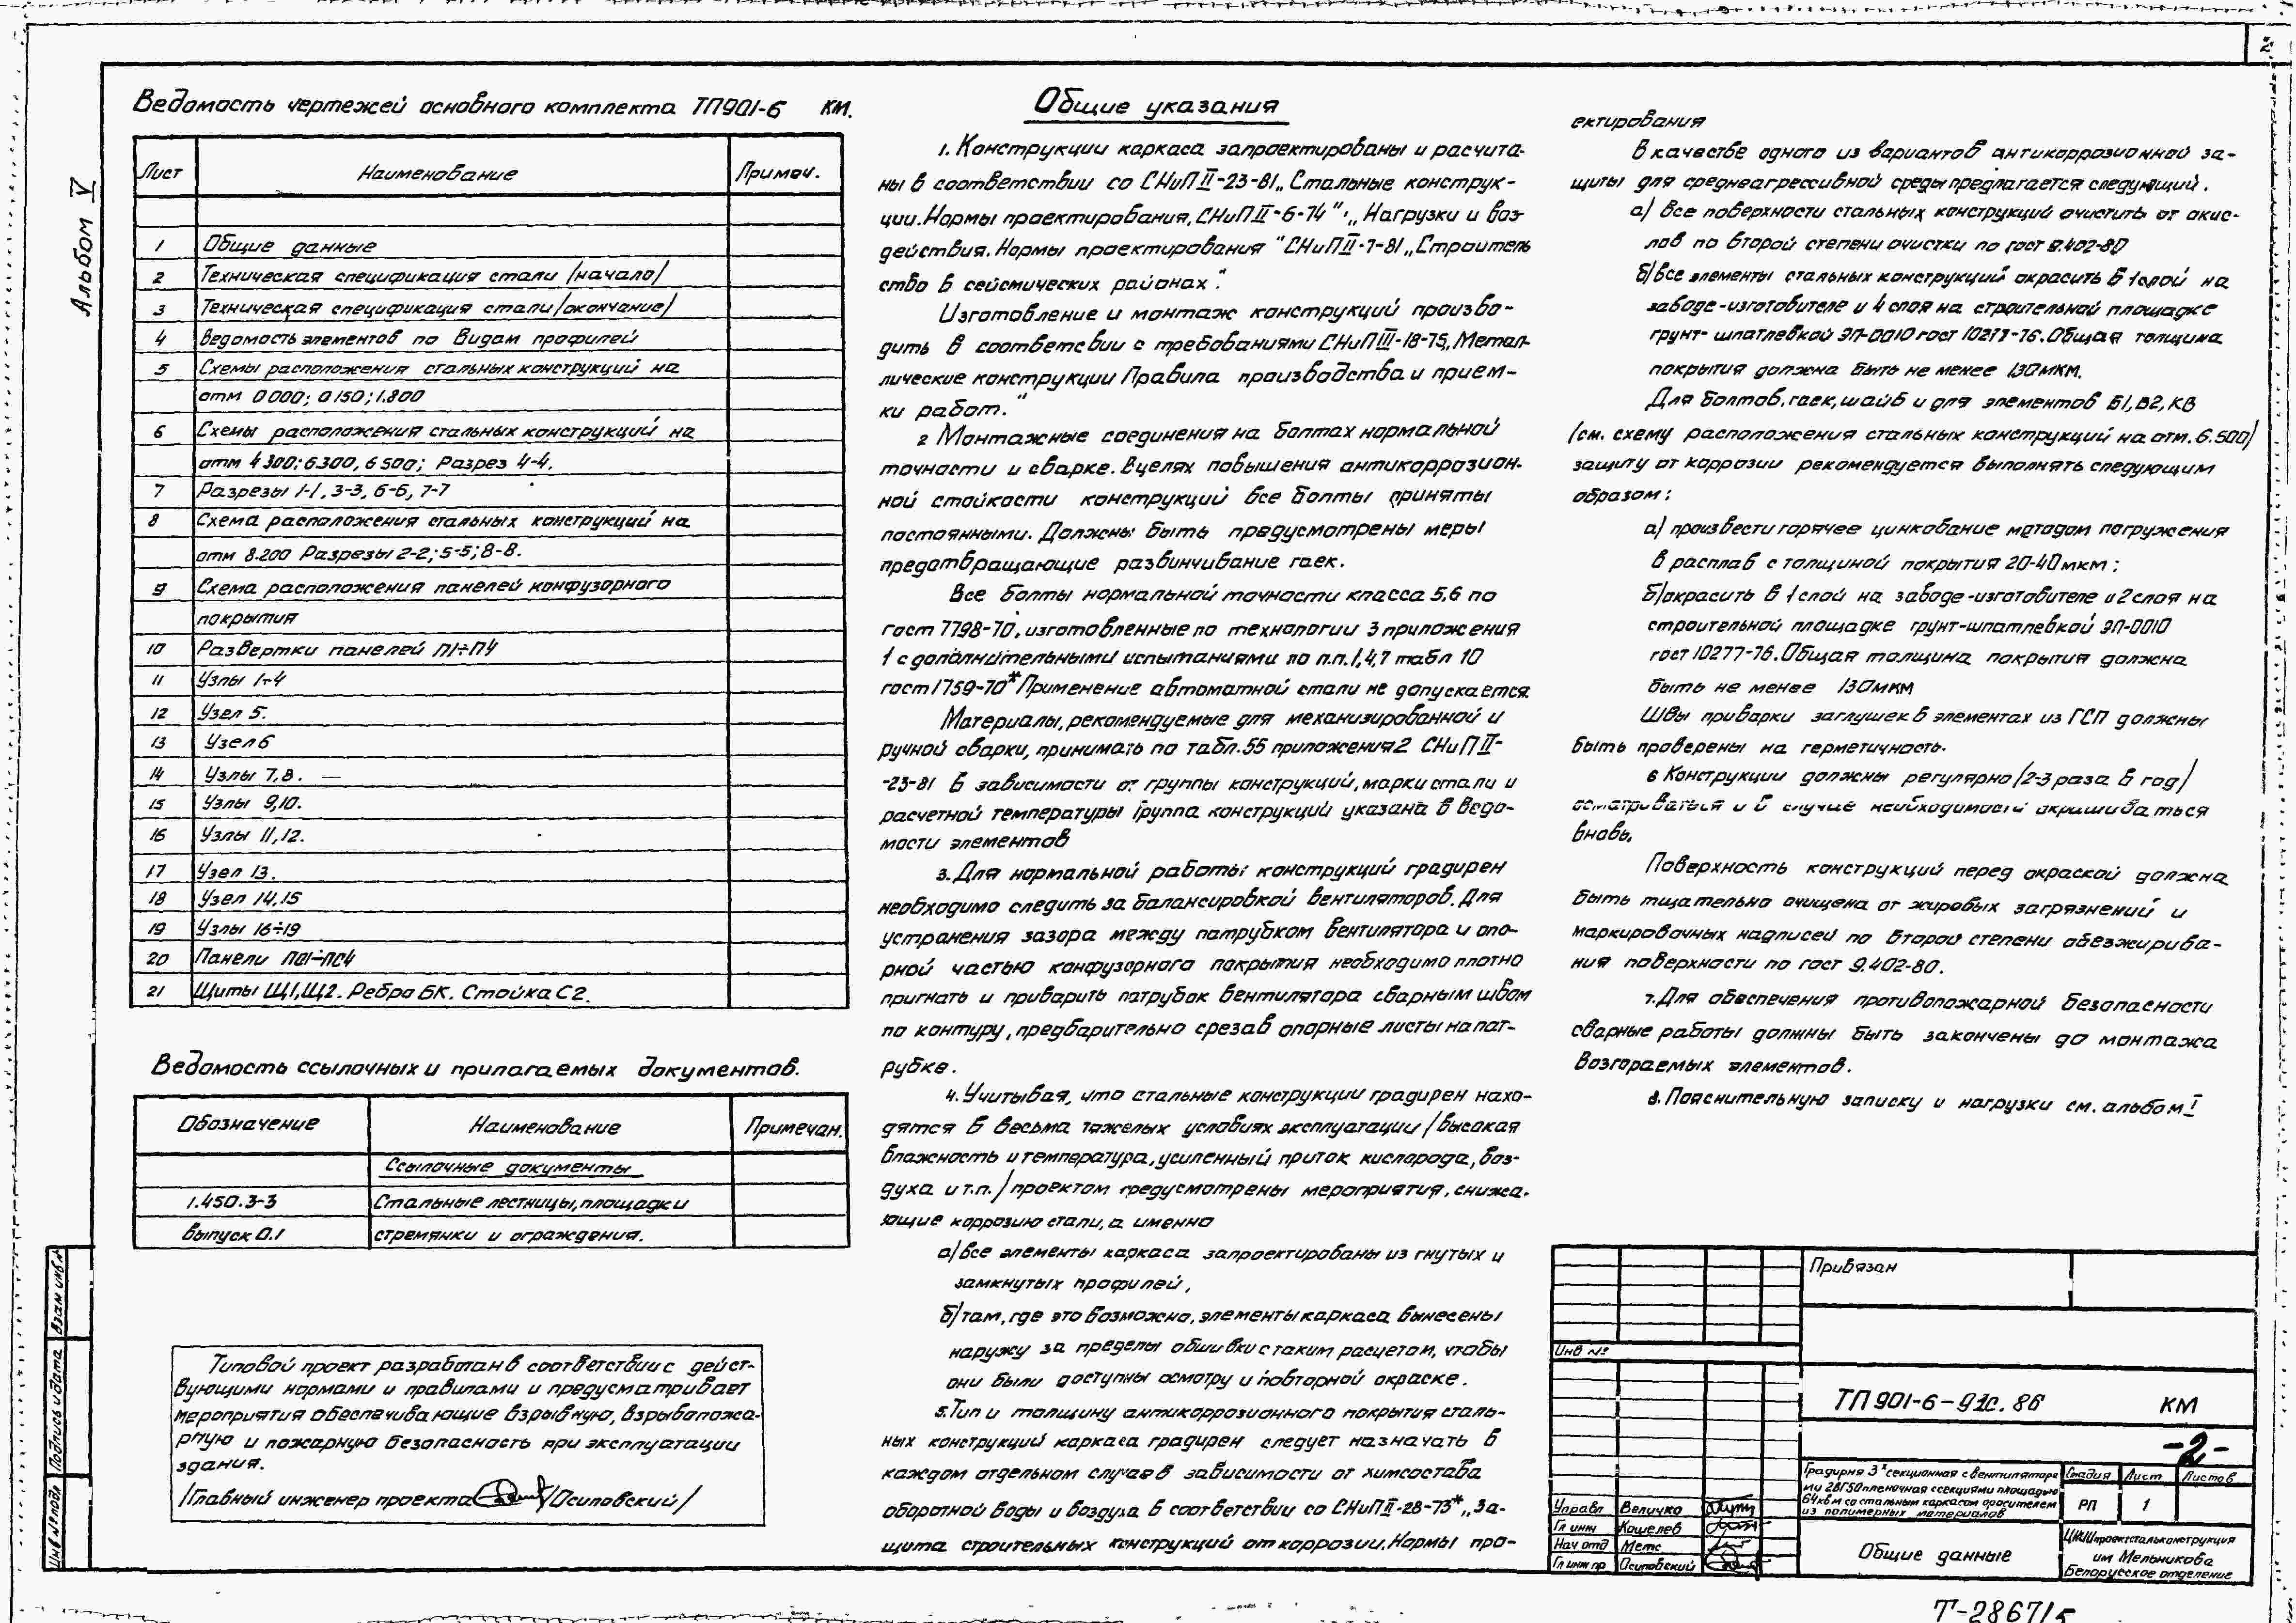 2
Альбом V
Ведомость чертежей основного комплекта ТП901-6 КМ.
Лист Наименование Примеч.
1 Общие данные
2 Техническая спецификация стали /начало/
3 Техническая спецификация стали /окончание/
4 Ведомость элементов по видам профилей
5 Схемы расположения стальных конструкций на
отм 0000; 0150; 1.800
6 Схемы расположения стальных конструкций на
отм 4300; 6300, 6500; Разрез 4-4.
7 Разрезы 1-1, 3-3, 6-6, 7-7
8 Схема расположения стальных конструкций на
отм 8.200 Разрезы 2-2; 5-5; 8-8.
9 Схема расположения панелей конфузорного
покрытия
10 Развертки панелей П1÷П4
11 Узлы 1÷4
12 Узел 5.
13 Узел 6
14 Узлы 7,8.
15 Узлы 9,10.
16 Узлы 11,12.
17 Узел 13.
18 Узел 14,15
19 Узлы 16÷19
20 Панели ПС1÷ПС4
21 Щиты Щ1,Щ2. Ребро БК. Стойка С2.
Ведомость ссылочных и прилагаемых документов.
Обозначение Наименование Примечан.
Ссылочные документы
1.450.3-3 Стальные лестницы, площадки
выпуск 0.1 стремянки и ограждения.
Типовой проект разработан в соответствии с дейст-
вующими нормами и правилами и предусматривает
мероприятия обеспечивающие взрывную, взрывопожа-
рную и пожарную безопасность при эксплуатации
здания.
/Главный инженер проекта /Осиповский/
Общие указания
1. Конструкции каркаса запроектированы и расчита-
ны в соответствии со СНиП II-23-81 „Стальные конструк-
ции. Нормы проектирования, СНиП II-6-74", „Нагрузки и воз-
действия. Нормы проектирования" СНиП II-7-81 „Строитель
ство в сейсмических районах".
Изготовление и монтаж конструкций произво-
дить в соответсвии с требованиями СНиП III-18-75 „Метал-
лические конструкции Правила производства и прием-
ки работ."
2 Монтажные соединения на болтах нормальной
точности и сварке. В целях повышения антикоррозион-
ной стойкости конструкций все болты приняты
постоянными. Должны быть предусмотрены меры
предотвращающие развинчивание гаек.
Все болты нормальной точности класса 5,6 по
гост 7798-70, изготовленные по технологии 3 приложения
1 с дополнительными испытаниями по п.п. 1,4,7 табл 10
гост 1759-70* Применение автоматной стали не допускается.
Материалы, рекомендуемые для механизированной и
ручной сварки, принимать по табл. 55 приложения 2 СНиП II-
-23-81 в зависимости от группы конструкций, марки стали и
расчетной температуры Группа конструкций указана в ведо-
мости элементов
3. Для нормальной работы конструкций градирен
необходимо следить за балансировкой вентиляторов. Для
устранения зазора между патрубком вентилятора и опо-
рной частью конфузорного покрытия необходимо плотно
пригнать и приварить патрубок вентилятора сварным швом
по контуру, предварительно срезав опорные листы на пат-
рубке.
4. Учитывая, что стальные конструкции градирен нахо-
дятся в весьма тяжелых условиях эксплуатации /высокая
влажность и температура, усиленный приток кислорода, воз-
духа и т.п./ проектом предусмотрены мероприятия, снижа-
ющие коррозию стали, а именно
а/ все элементы каркаса запроектированы из гнутых и
замкнутых профилей,
б/ там, где это возможно, элементы каркаса вынесены
наружу за пределы обшивки с таким расчетом, чтобы
они были доступны осмотру и повторной окраске.
5. Тип и толщину антикоррозионного покрытия сталь-
ных конструкций каркаса градирен следует назначать в
каждом отдельном случае в зависимости от химсостава
оборотной воды и воздуха в соответствии со СНиП II-28-73* „За-
щита строительных конструкций от коррозии. Нормы про-
ектирования
В качестве одного из вариантов антикоррозионной за-
щиты для среднеагрессивной среды предлагается следующий.
а/ Все поверхности стальных конструкций очистить от окис-
лов по второй степени очистки по гост 9.402-80
б/ все элементы стальных конструкций окрасить в 1 слой на
заводе-изготовителе и 4 слоя на строительной площадке
грунт-шпатлевкой ЭП-0010 гост 10277-76. Общая толщина
покрытия должна быть не менее 130мкм.
Для болтов, гаек, шайб и для элементов Б1, В2, КВ
/см. схему расположения стальных конструкций на отм. 6.500/
защиту от коррозии рекомендуется выполнять следующим
образом:
а/ произвести горячее цинкование методом погружения
в расплав с толщиной покрытия 20-40 мкм;
б/ окрасить в 1 слой на заводе-изготовителе и 2 слоя на
строительной площадке грунт-шпатлевкой ЭП-0010
гост 10277-76. Общая толщина покрытия должна
быть не менее 130мкм
Швы приварки заглушек в элементах из ГСП должны
быть проверены на герметичность.
6 Конструкции должны регулярно /2-3 раза в год/
осматриваться и в случае необходимости окрашиваться
вновь.
Поверхность конструкций перед окраской должна
быть тщательно очищена от жировых загрязнений и
маркировочных надписей по второй степени обезжирива-
ния поверхности по гост 9.402-80.
7. Для обеспечения противопожарной безопасности
сварные работы должны быть закончены до монтажа
возгораемых элементов.
8. Пояснительную записку и нагрузки см. альбом I
Инв № подл Подпись и дата Взам инв.№
Привязан
Инв №
ТП 901-6-91с. 86 КМ
-2-
Градирня 3х секционная с вентиляторa
ми 2ВГ50 пленочная с секциями площадью
64кв м со стальным каркасом оросителем
из полимерных материалов
Стадия Лист Листов
РП 1
Управл Величко
Гл инж Кошелев
Нач отд Метс
Гл инж пр Осиповский
Общие данные
ЦНИИпроектстальконструкция
им Мельникова
Белорусское отделение
Т-2867/5